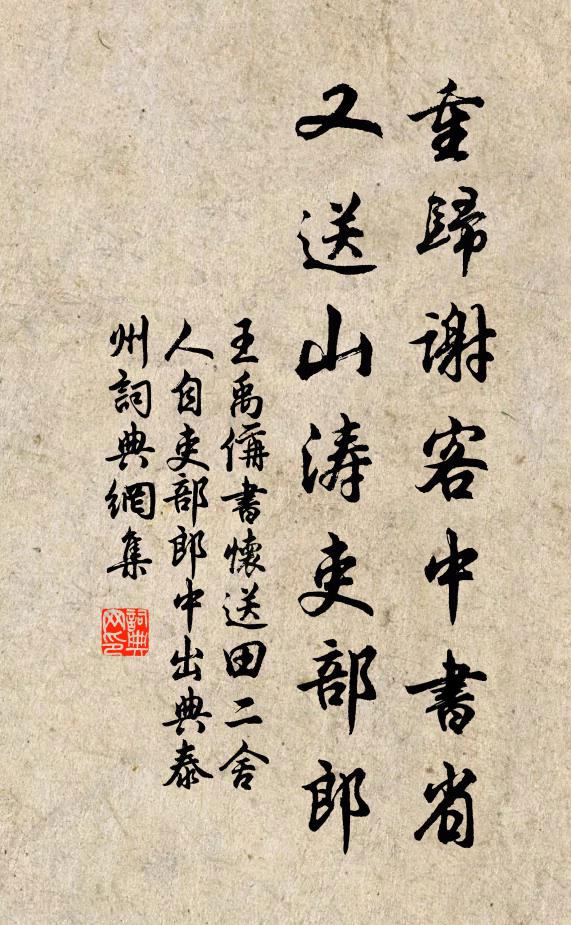 重歸謝客中書省
又送山濤吏部郎
王禹偁書懷送田二舍
人自吏部郎中出典泰
州詞典網集
詞典网印